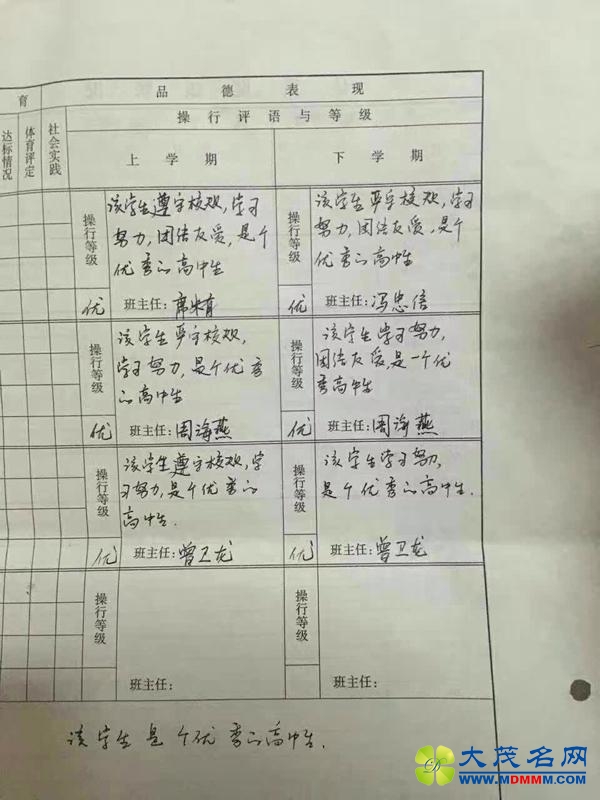 育 品德表现
达标情况 体育评定 社会实践 操行评语与等级
上学期 下学期
操行等级 优
该学生遵守校规,学习
努力,团结友爱,是个
优秀的高中生
班主任:
操行等级 优
该学生严守校规,学习
努力,团结友爱,是个
优秀的高中生
班主任:冯忠信
操行等级 优
该学生严守校规,
学习努力,是个优秀
的高中生
班主任:周海燕
操行等级 优
该学生学习努力,
团结友爱,是一个优
秀高中生
班主任:周海燕
操行等级 优
该学生遵守校规,学
习努力,是个优秀的
高中生.
班主任:曾卫龙
操行等级 优
该学生学习努力,
是个优秀的高中生.
班主任:曾卫龙
操行等级
班主任:
操行等级
班主任:
该学生是个优秀的高中生.
大茂名网
WWW.MDMMM.COM